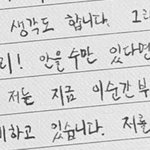 생각도 합니다. 그리
리! 안을 수만 있다면
저는 지금 이순간 부
하고 있습니다. 저를